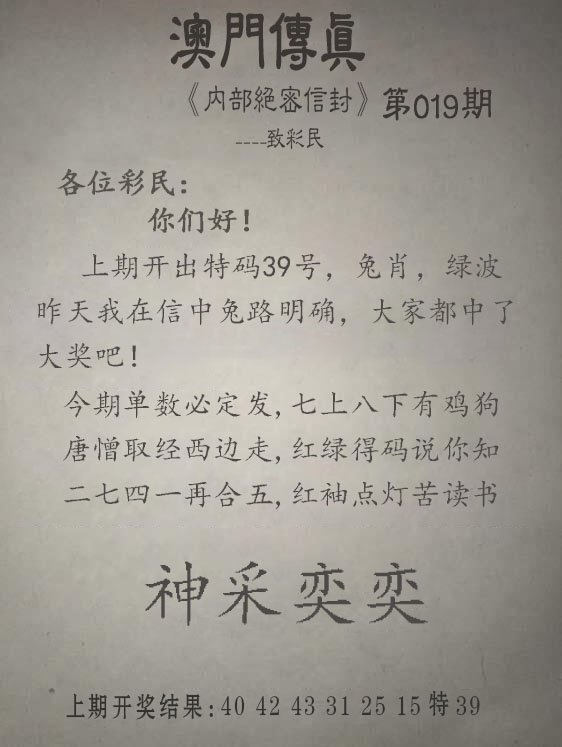 澳門傳眞
《内部絕密信封》第019期
----致彩民
各位彩民：
你们好！
上期开出特码39号，兔肖，绿波
昨天我在信中兔路明确，大家都中了
大奖吧！
今期单数必定发,七上八下有鸡狗
唐憎取经西边走,红绿得码说你知
二七四一再合五,红袖点灯苦读书
神采奕奕
上期开奖结果:40 42 43 31 25 15特39